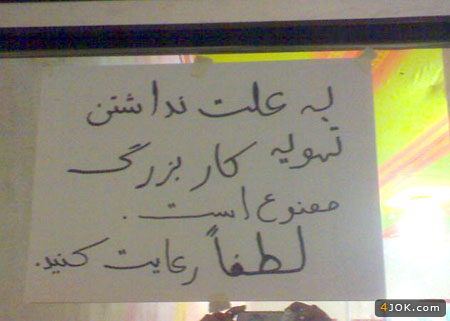 به علت نداشتن
تهویه کار بزرگ
ممنوع است.
لطفاً رعایت کنید.
4JOK.com